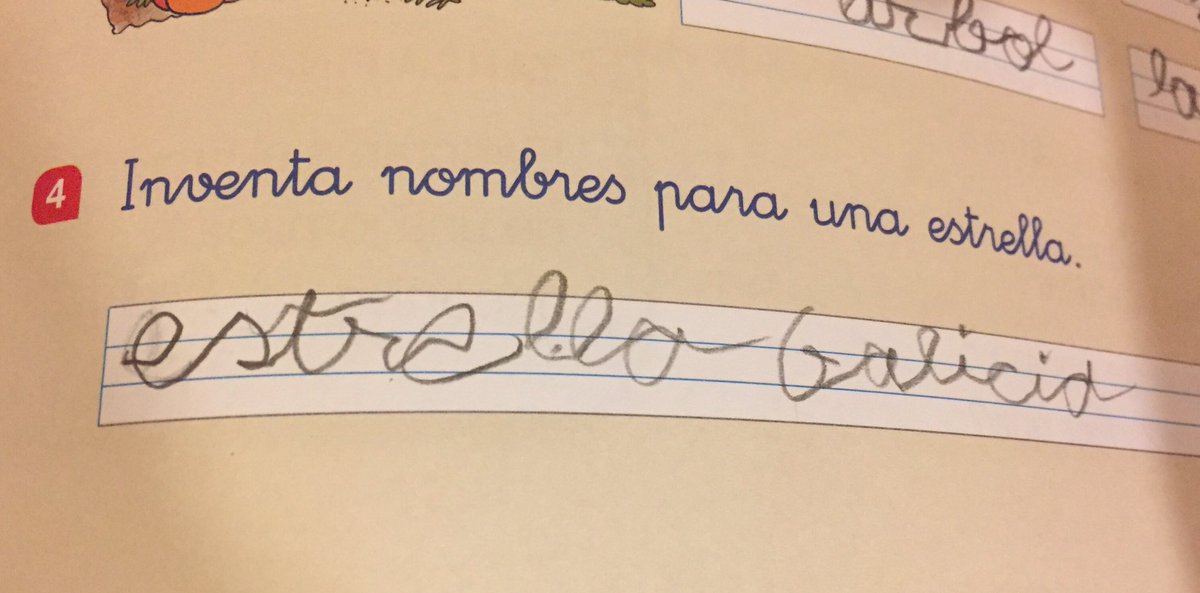 árbol
la
4 Inventa nombres para una estrella.
estrella Galicia